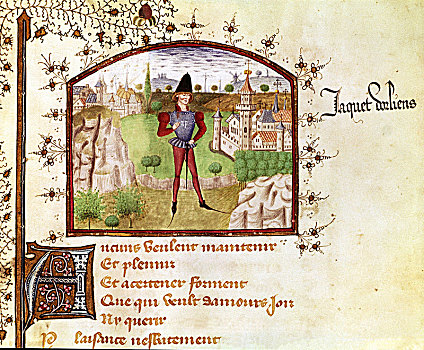 Jaquet dorliens
Aucuns veulent maintenir
Et plennir
Et acertener forment
Que qui veult damours Joir
Ny querir
Plaisance nesbatement